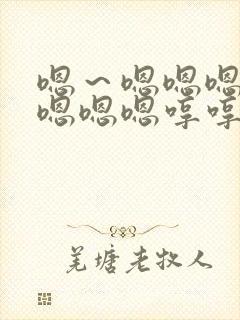 嗯～嗯嗯嗯
嗯嗯嗯哼哼
羌塘老牧人